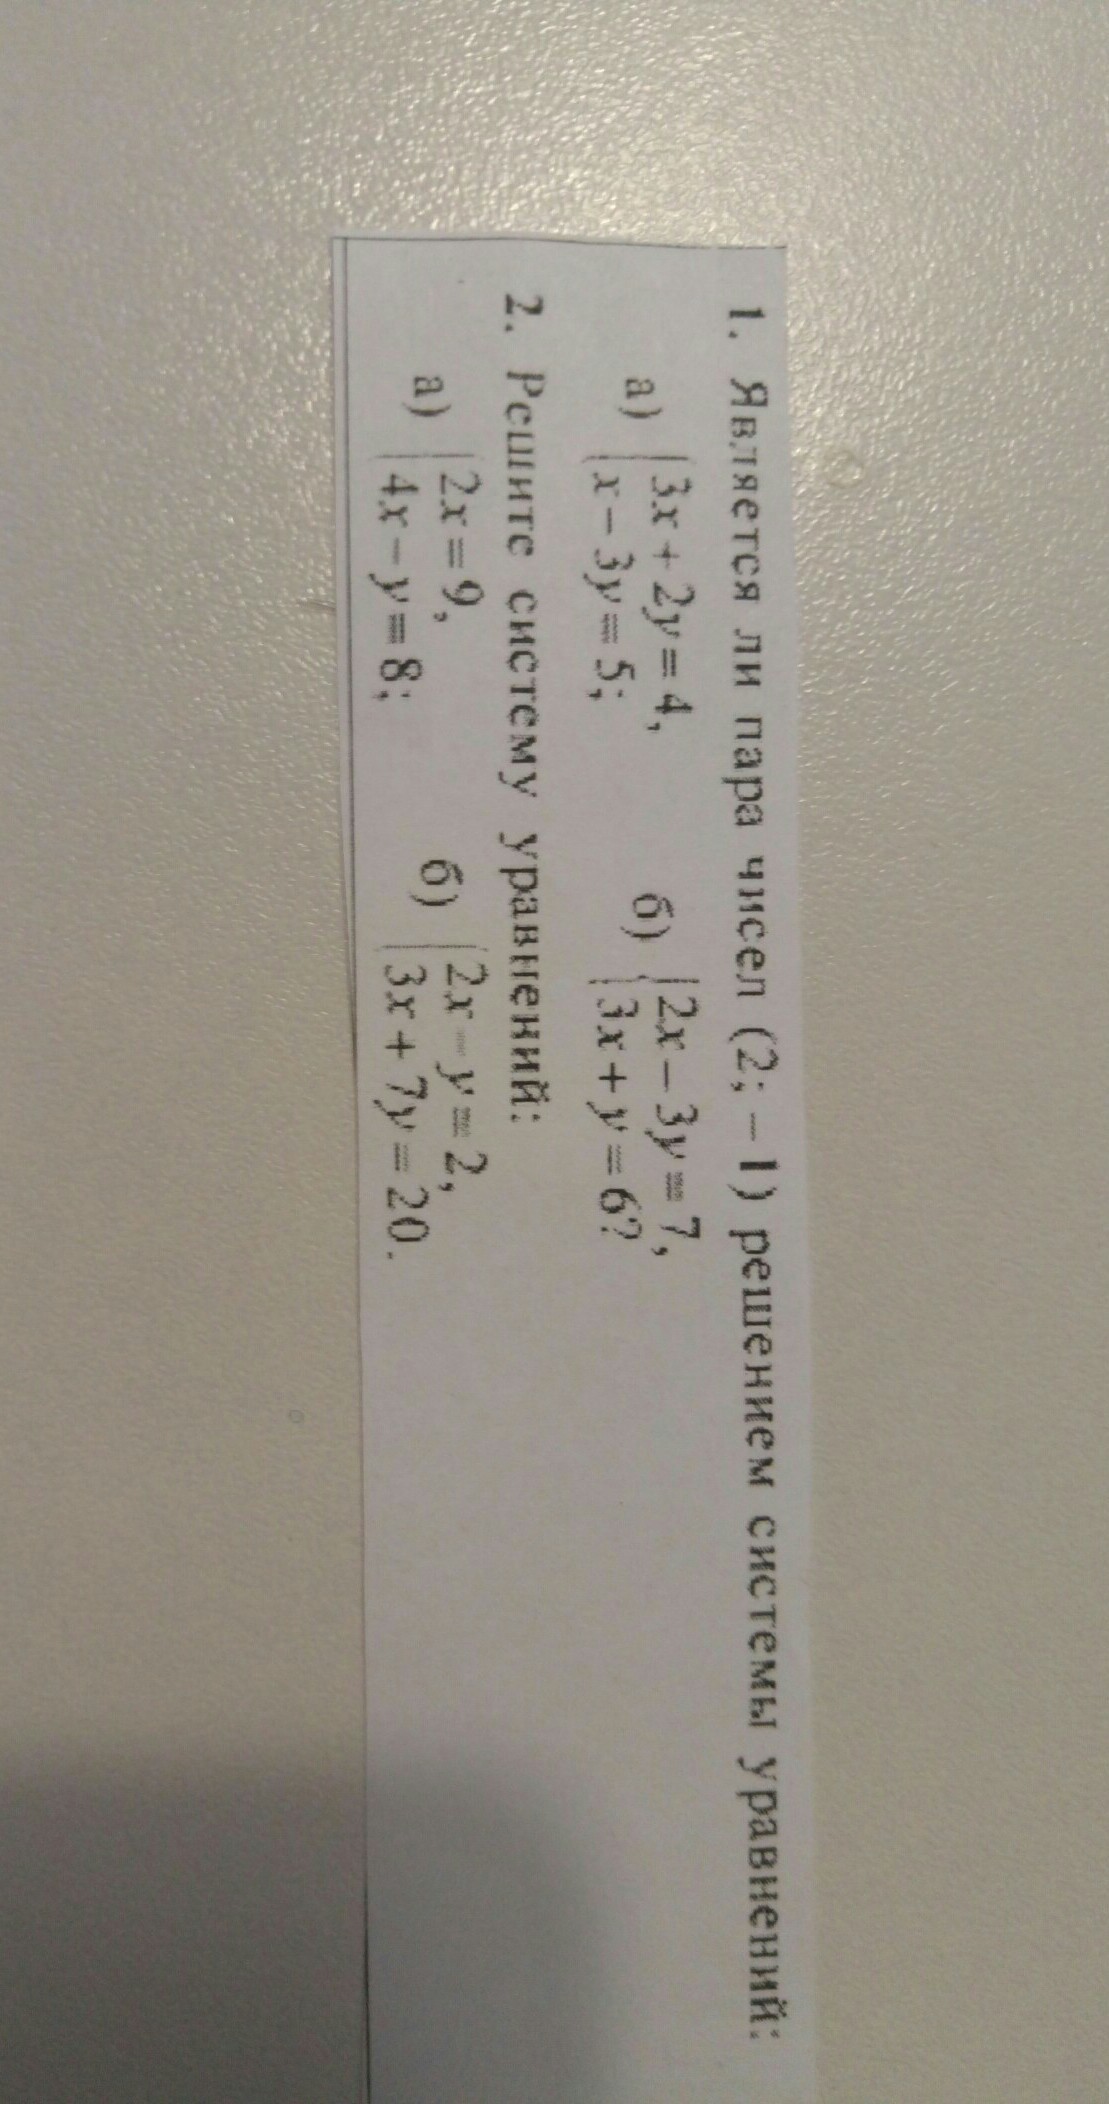 1. Является ли пара чисел (2; −1) решением системы уравнений:
а) 3x + 2y = 4, б) 2x − 3y = 7,
x − 3y = 5; 3x + y = 6?
2. Решите систему уравнений:
а) 2x = 9, б) 2x − y = 2,
4x − y = 8; 3x + 7y = 20.